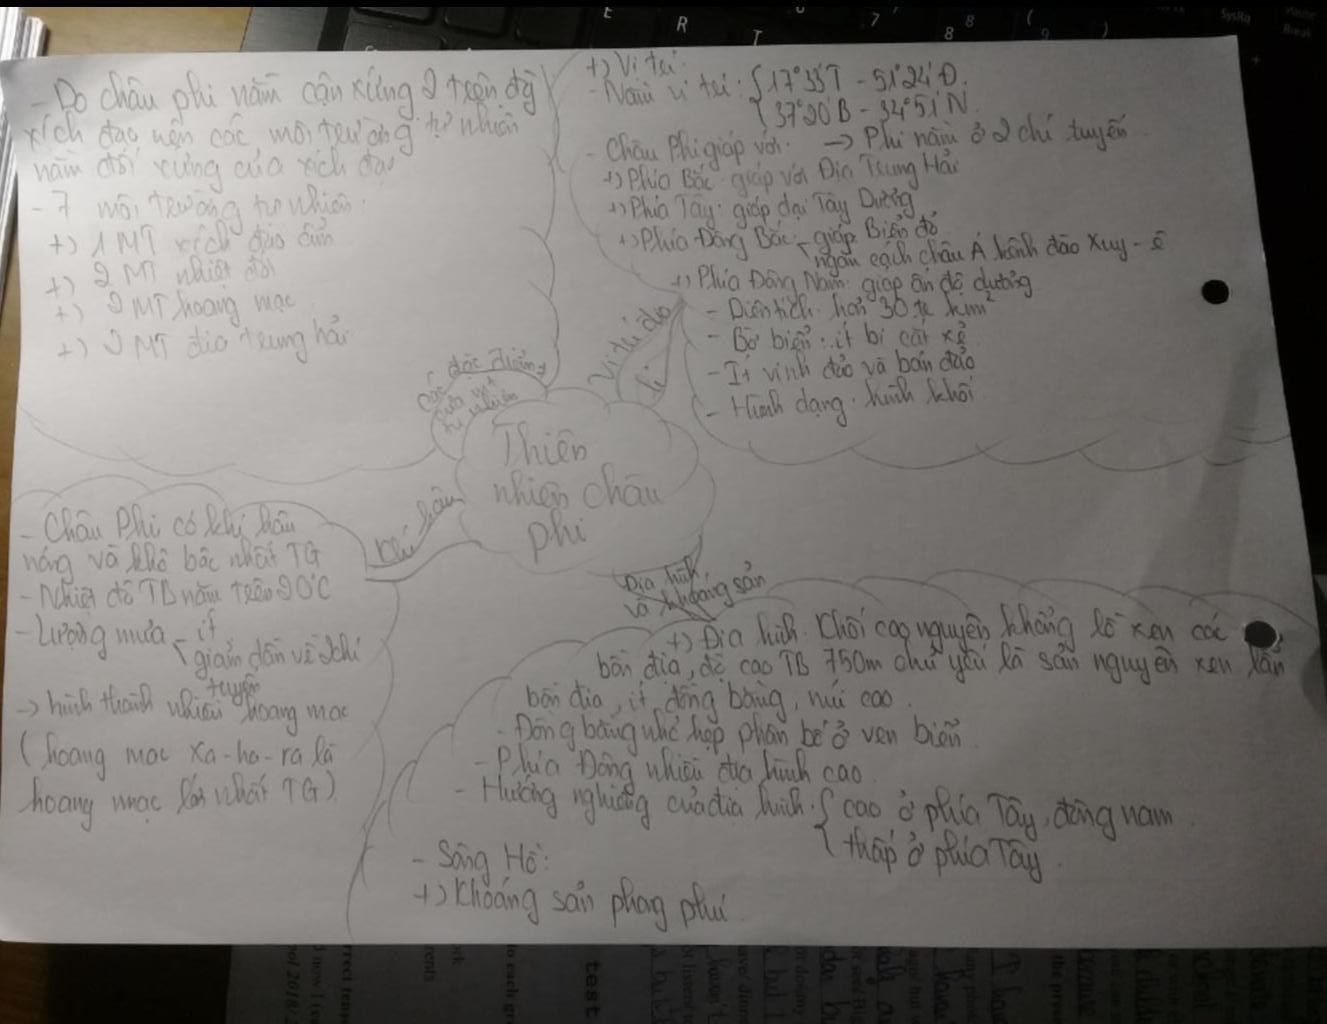 - Do châu phi nằm cận xứng 2 trên đg
xích đạo nên các môi trường tự nhiên
nằm đối xứng của xích đạo
- 7 môi trường tự nhiên:
+) 1 MT xích đạo ẩm
+) 2 MT nhiệt đới
+) 2 MT hoang mạc
+) 2 MT địa trung hải
các đặc điểm
của mt
tự nhiên
+) Vị trí:
- Nằm vị trí: 17°33'T - 51°24'Đ
37°20'B - 34°51'N
- Châu Phi giáp với: → Phi nằm ở 2 chí tuyến
+) Phía Bắc: giáp với Địa Trung Hải
+) Phía Tây: giáp đại Tây Dương
+) Phía Đông Bắc: giáp Biển đỏ
ngăn cách châu Á kênh đào Xuy-ê
+) Phía Đông Nam: giáp ấn độ dương
- Diện tích: hơn 30 tr km²
- Bờ biển: ít bị cắt xẻ
- Ít vịnh đảo và bán đảo
- Hình dạng: hình khối
Vị trí địa
lí
Thiên
nhiên châu
phi
Khí hậu
- Châu Phi có khí hậu
nóng và khô bậc nhất TG
- Nhiệt độ TB năm trên 20°C
- Lượng mưa ít
giảm dần về 2 chí
tuyến
→ hình thành nhiều hoang mạc
(hoang mạc Xa-ha-ra là
hoang mạc lớn nhất TG)
Địa hình
và khoáng sản
+) Địa hình: Khối cao nguyên khổng lồ xen các
bồn địa, độ cao TB 750m chủ yếu là sản nguyên xen lẫn
bồn địa, ít đồng bằng, núi cao.
- Đồng bằng nhỏ hẹp phân bố ở ven biển
- Phía Đông nhiều địa hình cao.
- Hướng nghiêng của địa hình: cao ở phía Tây, đông nam
thấp ở phía Tây.
- Sông Hồ:
+) Khoáng sản phong phú
test